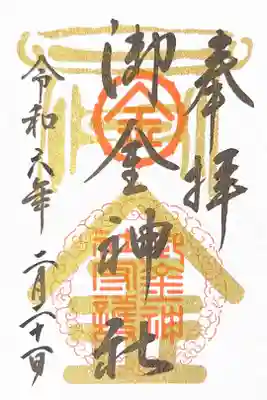 奉拝
御金神社
令和六年 二月二十一日
金